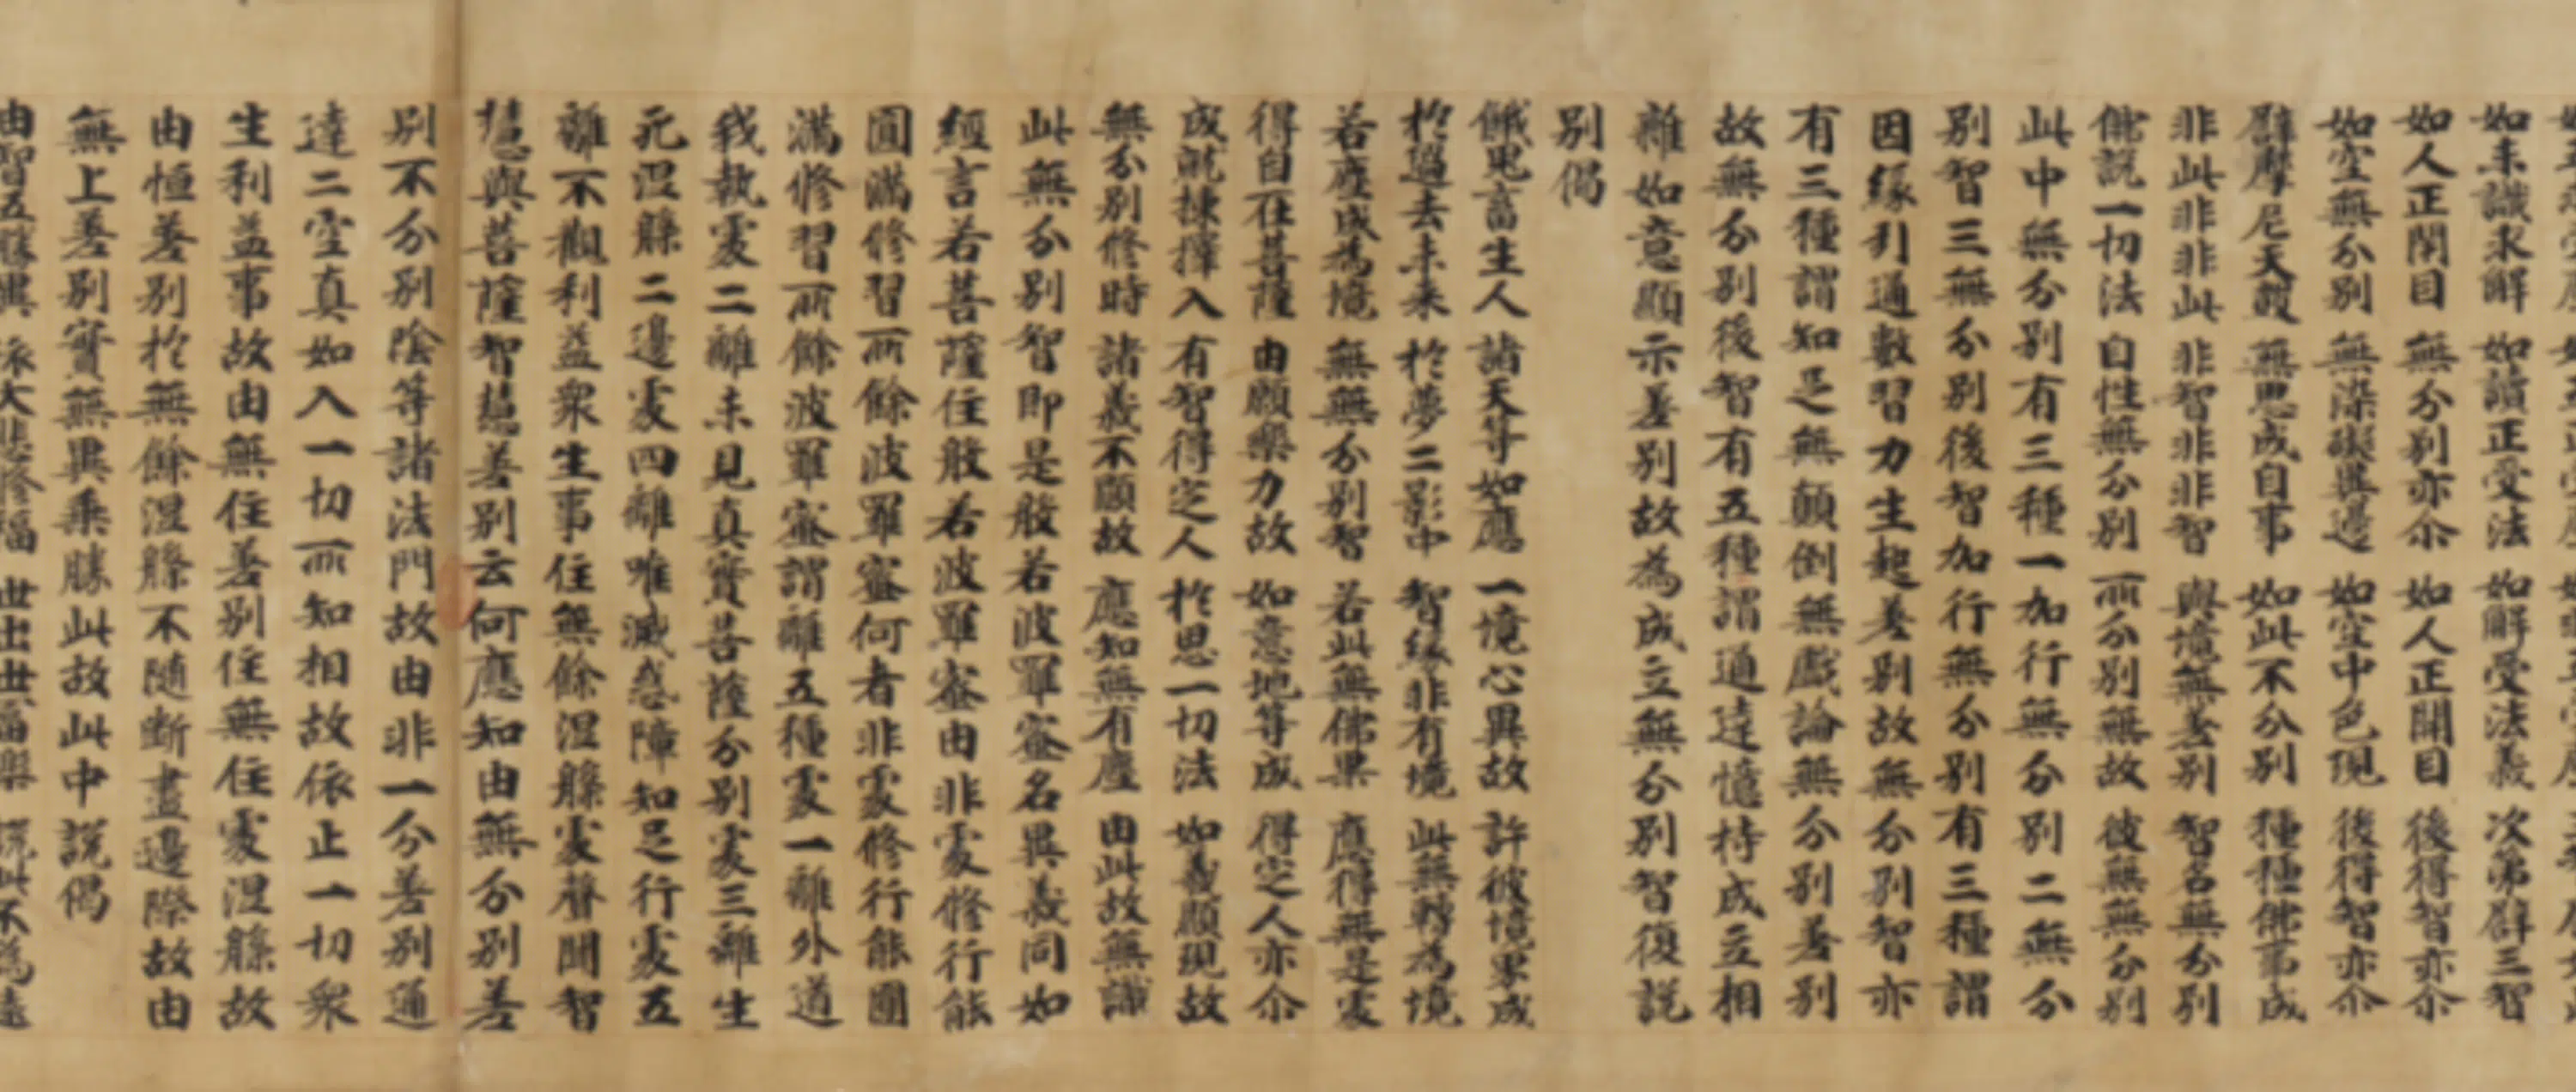 如未識求解 如讀正受法 如解受法義 次第辟三智
如人正閇目 無分別亦尒 如人正開目 後得智亦尒
如空無分別 無染礙異邊 如空中色現 後得智亦尒
辟摩尼天鼓 無思成自事 如此不分別 種種佛事成
非此非非此 非智非非智 與境無差別 智名無分別
佛說一切法 自性無分別 所分別無故 彼無無分別
此中無分別有三種一加行無分別二無分
別智三無分別後智加行無分別有三種謂
因緣引通數習力生起差別故無分別智亦
有三種謂知足無顛倒無戲論無分別差別
故無分別後智有五種謂通達憶持成立相
雜如意顯示差別故為成立無分別智復說
別偈
餓鬼畜生人 諸天等如應 一境心異故 許彼境界成
於過去未来 於夢二影中 智緣非有境 此無轉為境
若塵成為境 無無分別智 若此無佛果 應得無是處
得自在菩薩 由願樂力故 如意地等成 得定人亦尒
成就揀擇人 有智得定人 於思一切法 如義顯現故
無分別修時 諸義不顯故 應知無有塵 由此故無識
此無分別智即是般若波羅蜜名異義同如
經言若菩薩住般若波羅蜜由非處修行能
圓滿修習所餘波羅蜜何者非處修行能圓
滿修習所餘波羅蜜謂離五種處一離外道
我執處二離未見真實菩薩分別處三離生
死涅槃二邊處四離唯滅惑障知足行處五
離不觀利益衆生事住無餘涅槃處聲聞智
慧與菩薩智慧差別云何應知由無分別差
別不分別陰等諸法門故由非一分差別通
達二空真如入一切所知相故依止一切衆
生利益事故由無住差別住無住處涅槃故
由恒差別於無餘涅槃不隨斷盡邊際故由
無上差別實無異乘勝此故此中說偈
由智五勝異 依大悲修福 世出世富樂 說此不為遠